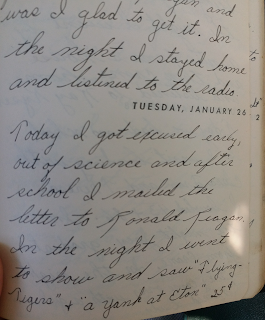 was I glad to get it. In
the night I stayed home
and listened to the radio.
TUESDAY, JANUARY 26
Today I got excused early,
out of science and after
school I mailed the
letter to Ronald Reagan.
In the night I went
to show and saw "Flying-
Tigers" + "a Yank at Eton" 25¢
to